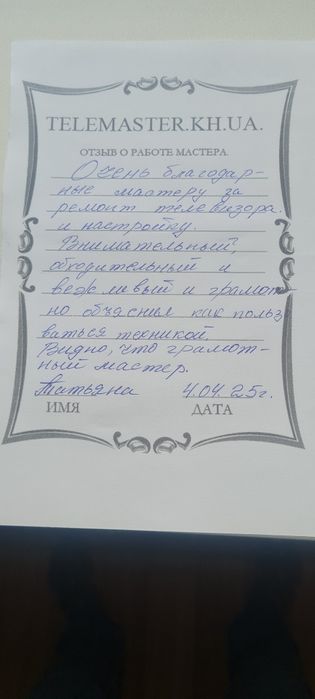 TELEMASTER.KH.UA.
ОТЗЫВ О РАБОТЕ МАСТЕРА.
Очень благодар-
ные мастеру за
ремонт телевизора.
и настройку.
Внимательный,
обходительный и
вежливый и грамот-
но объяснил как польз
ваться техникой.
Видно, что грамот-
ный мастер.
Татьяна 4.04.25г.
ИМЯ ДАТА